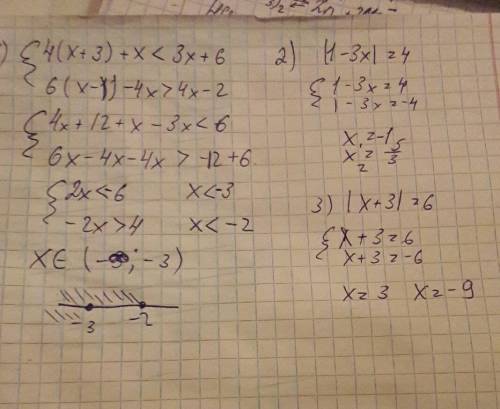 ) { 4(x+3)+x<3x+6
6(x-1)-4x>4x-2
{ 4x+12+x-3x<6
6x-4x-4x>-12+6
{ 2x<-6 x<-3
-2x>4 x<-2
x∈ (-∞; -3)
-3 -2
2) |1-3x|=4
{ 1-3x=4
1-3x=-4
x₁=-1
x₂=5/3
3) |x+3|=6
{ x+3=6
x+3=-6
x=3 x=-9